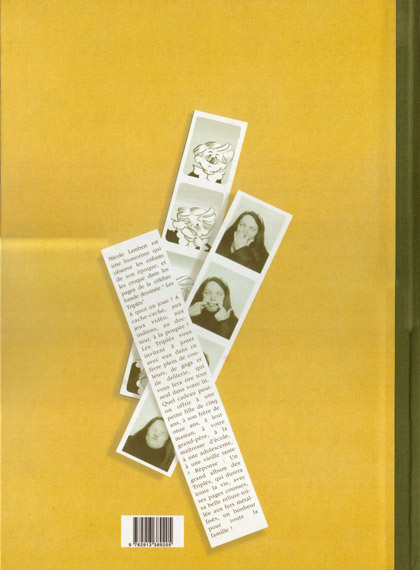 Nicole Lambert est
une humoriste qui
observe les enfants
de son époque, et
les croque dans les
pages de la célèbre
bande dessinée " Les
Triplés"
A quoi on joue ? A
cache-cache, aux
jeux vidéo, aux
indiens, au doc-
teur, à la poupée ?
Les Triplés vous
invitent à jouer
avec eux dans ce
livre plein de cou-
leurs, de gags et
de drôlerie, qui
vous fera rire tout
seul dans votre lit.
Quel cadeau peut-
on offrir à une
petite fille de cinq
ans, à son frère de
onze ans, à leur
maman, à votre
grand-père, à la
maîtresse d'école,
à une adolescente,
à une vieille tante
? Réponse : Un
grand album des
Triplés, qui durera
toute la vie, avec
ses pages cousues,
sa belle reliure toi-
lée aux fers métal-
lisés, un bonheur
pour toute la
famille !
9 782913 389205